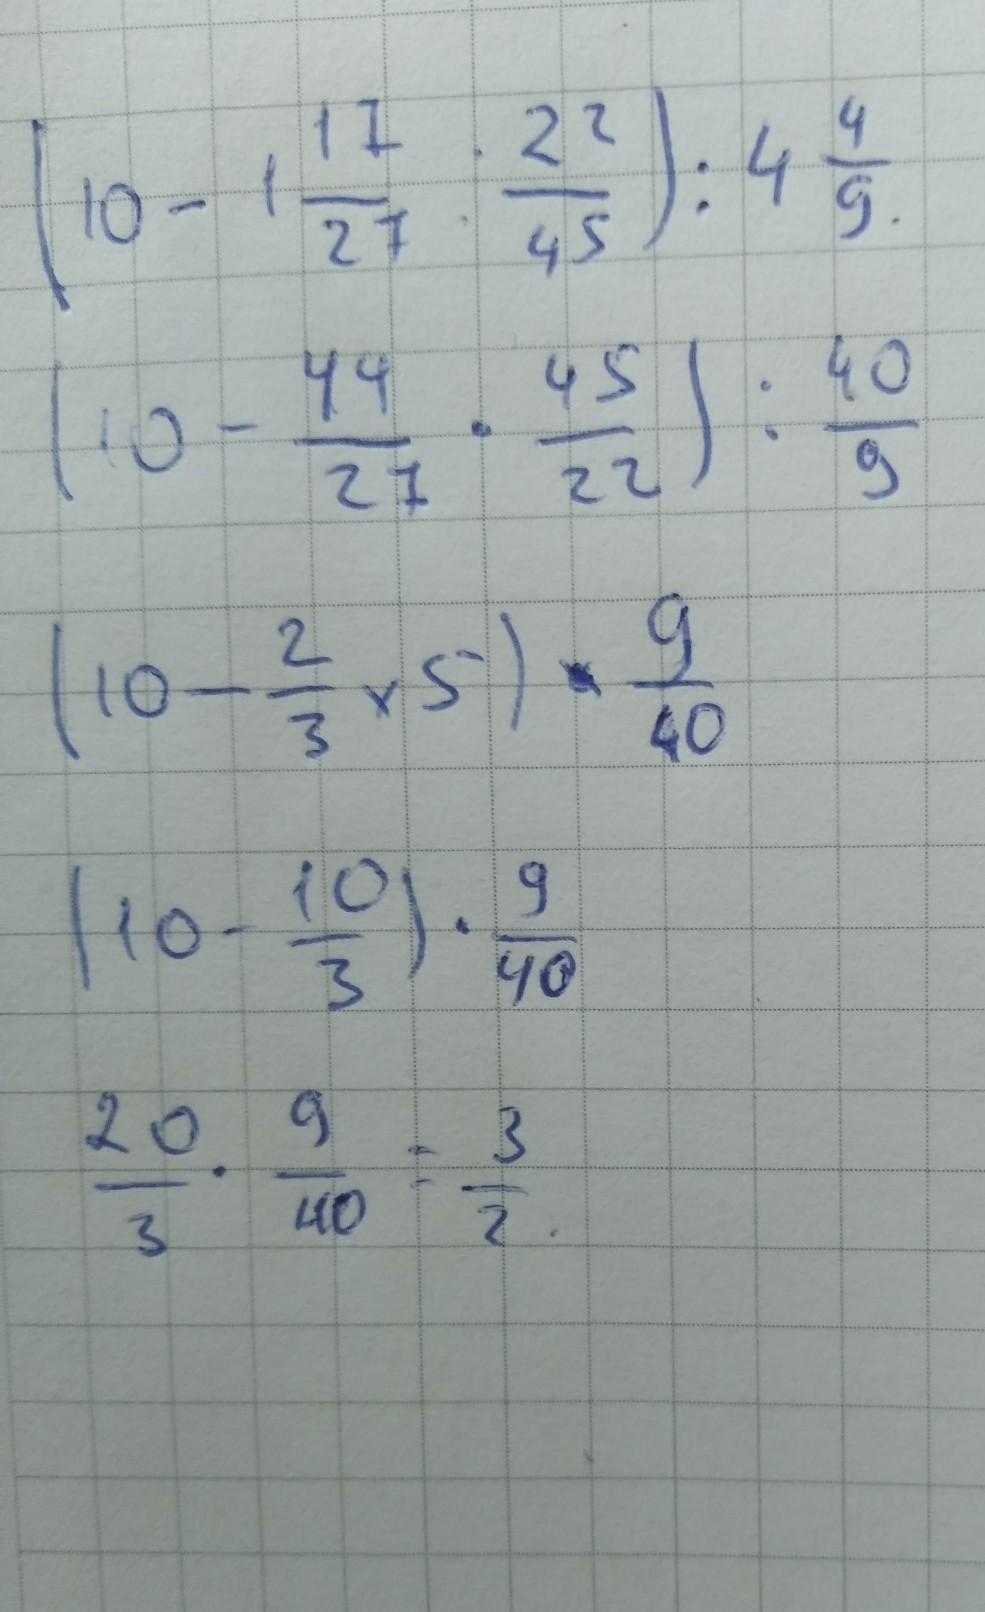 (10 - 1 17/27 : 22/45) : 4 4/9.
(10 - 44/27 · 45/22) : 40/9
(10 - 2/3 × 5) · 9/40
(10 - 10/3) · 9/40
20/3 · 9/40 = 3/2.